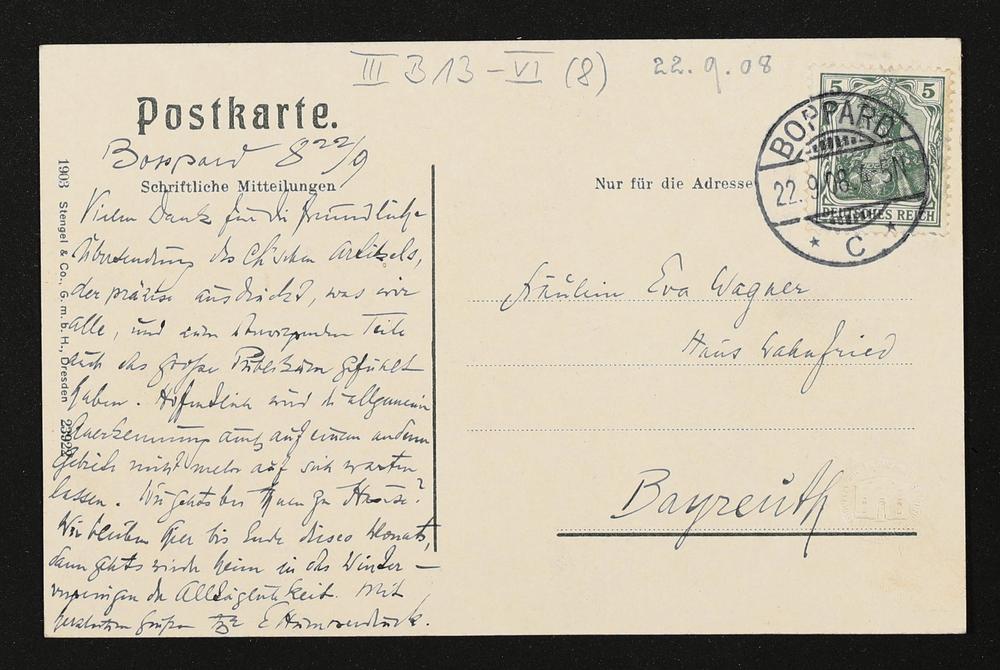 III B 13 - VI (8)
22.9.08
Postkarte.
Boppard 8 22/9
Schriftliche Mitteilungen
Vielen Dank für die freundliche
Übersendung des Ch'schen Artikels,
der präzise ausdrückt, was wir
alle, und zum Teile
auch das große Publikum gefühlt
haben. Hoffentlich wird die allgemeine
Anerkennung auch auf einem andern
Gebiete nicht mehr auf sich warten
lassen. Wie gehts bei Ihnen zu Hause?
Wir bleiben hier bis Ende dieses Monats,
dann gehts wieder heim in das Winter-
der Alltäglichkeit. Mit
herzlichen Grüßen E Humperdinck.
1903 Stengel & Co., G. m. b. H., Dresden
Nur für die Adresse
5 5
DEUTSCHES REICH
BOPPARD
22.9.08. 5N
* C *
Fräulein Eva Wagner
Haus Wahnfried
Bayreuth